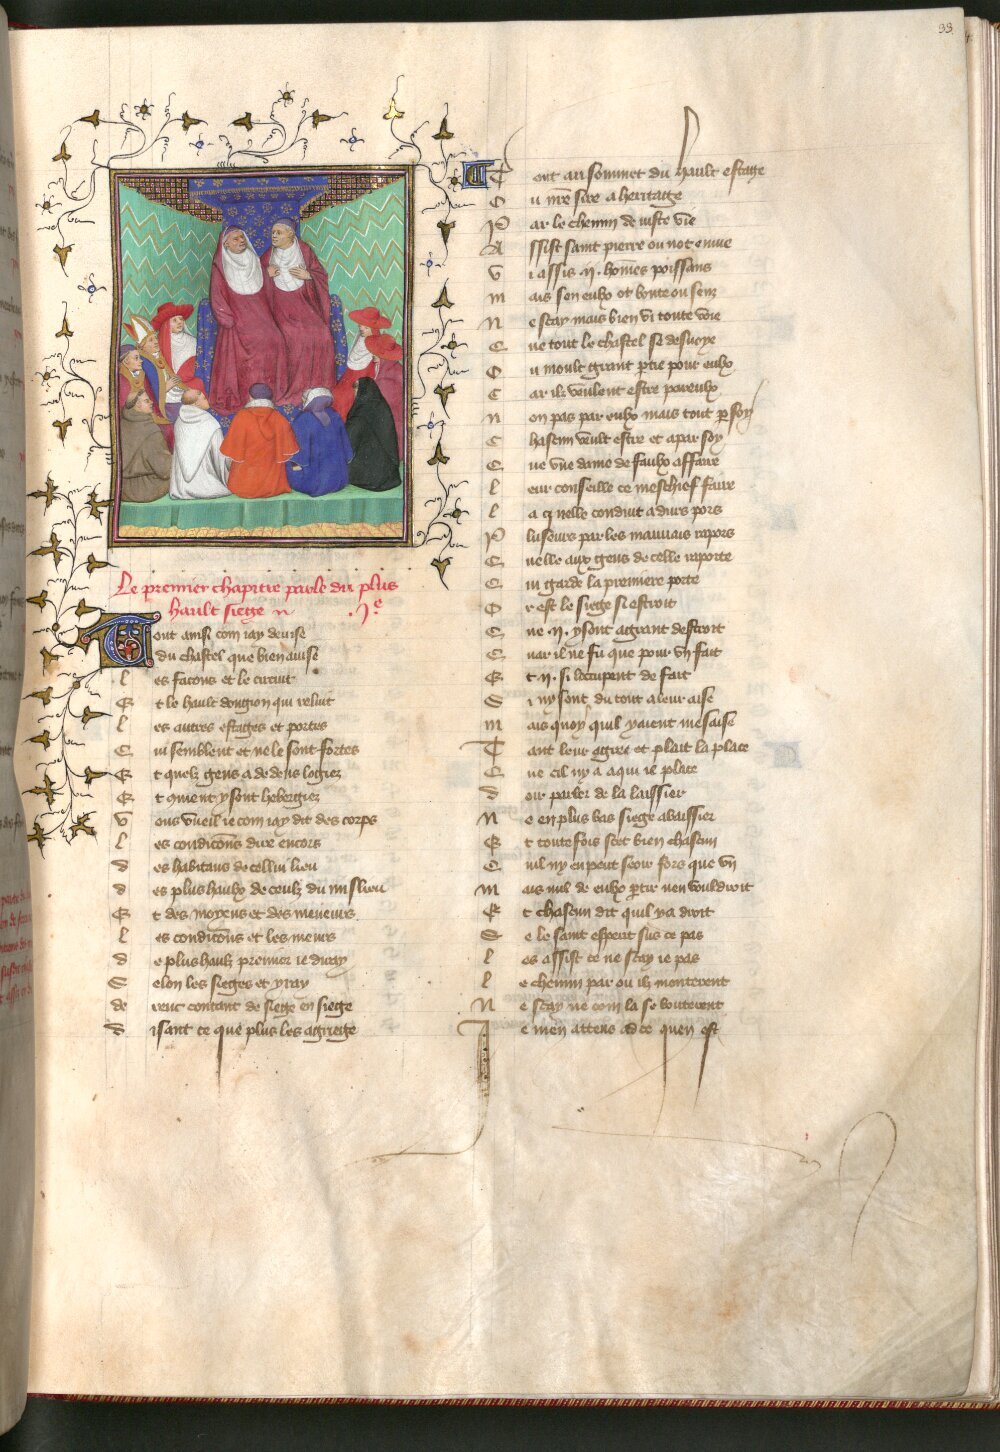 33.
Le premier chapitre parole du plus
hault siege
Tout ainsi com iay deuise
du chastel que bien auise
les facons et le circuit
Et le hault dongion qui reluit
les autres estages et portes
Qui semblent et ne le sont fortes
Et quelz gens a dedens logiez
Et coment y sont hebergiez
Vous vueil ie com iay dit des corps
les condicions dire encors
des habitans de cellui lieu
des plus haulx de ceulx du milieu
Et des moyens et des meneurs
les condicions et les meurs
de plus haulz premier ie diray
Selon les sieges et yray
de renc contant de siege en siege
disant ce que plus les agriege
Tout au sommet du hault estage
Ou nre sire a heritage
Par le chemin de iuste vie
Assist saint pierre ou not enuie
Vi assis .ii. homes poissans
mais
Ne scay mais bien vi toute voie
Que tout le chastel si desuoye
Ou moult grant ptie pour eulx
Car ilz veulent estre pareulx
non pas par eulx mais tout p soy
Chascun veult estre et apar soy
Que vne dame de faulx affaire
leur conseille ce meschief faire
la q nelle conduit a durs pors
Pluseurs par les mauuais rapors
Quelle aux gens de celle raporte
Qui garde la premiere porte
Or est le siege si estroit
Que .ii. y sont a grant destroit
Quar il ne fu que pour vn fait
Et .ii. si loccupent de fait
Si ny sont du tout a leur aise
mais quoy quil y aient mesaise
Tant leur agree et plait la place
Que cil ny a a qui ie place
doir parler de la laissier
Ne en plus bas siege abaissier
Et toutefois scet bien chascun
Quil ny en peut seoir fors que vn
mais nul de eulx ptir nen vouldroit
Et chascun dit quil y a droit
Se le saint esperit sus ce pas
les assist ce ne scay ie pas
le chemin par ou ilz monterent
Ne scay ne com la se bouterent
Ie men attens ad ce quen est